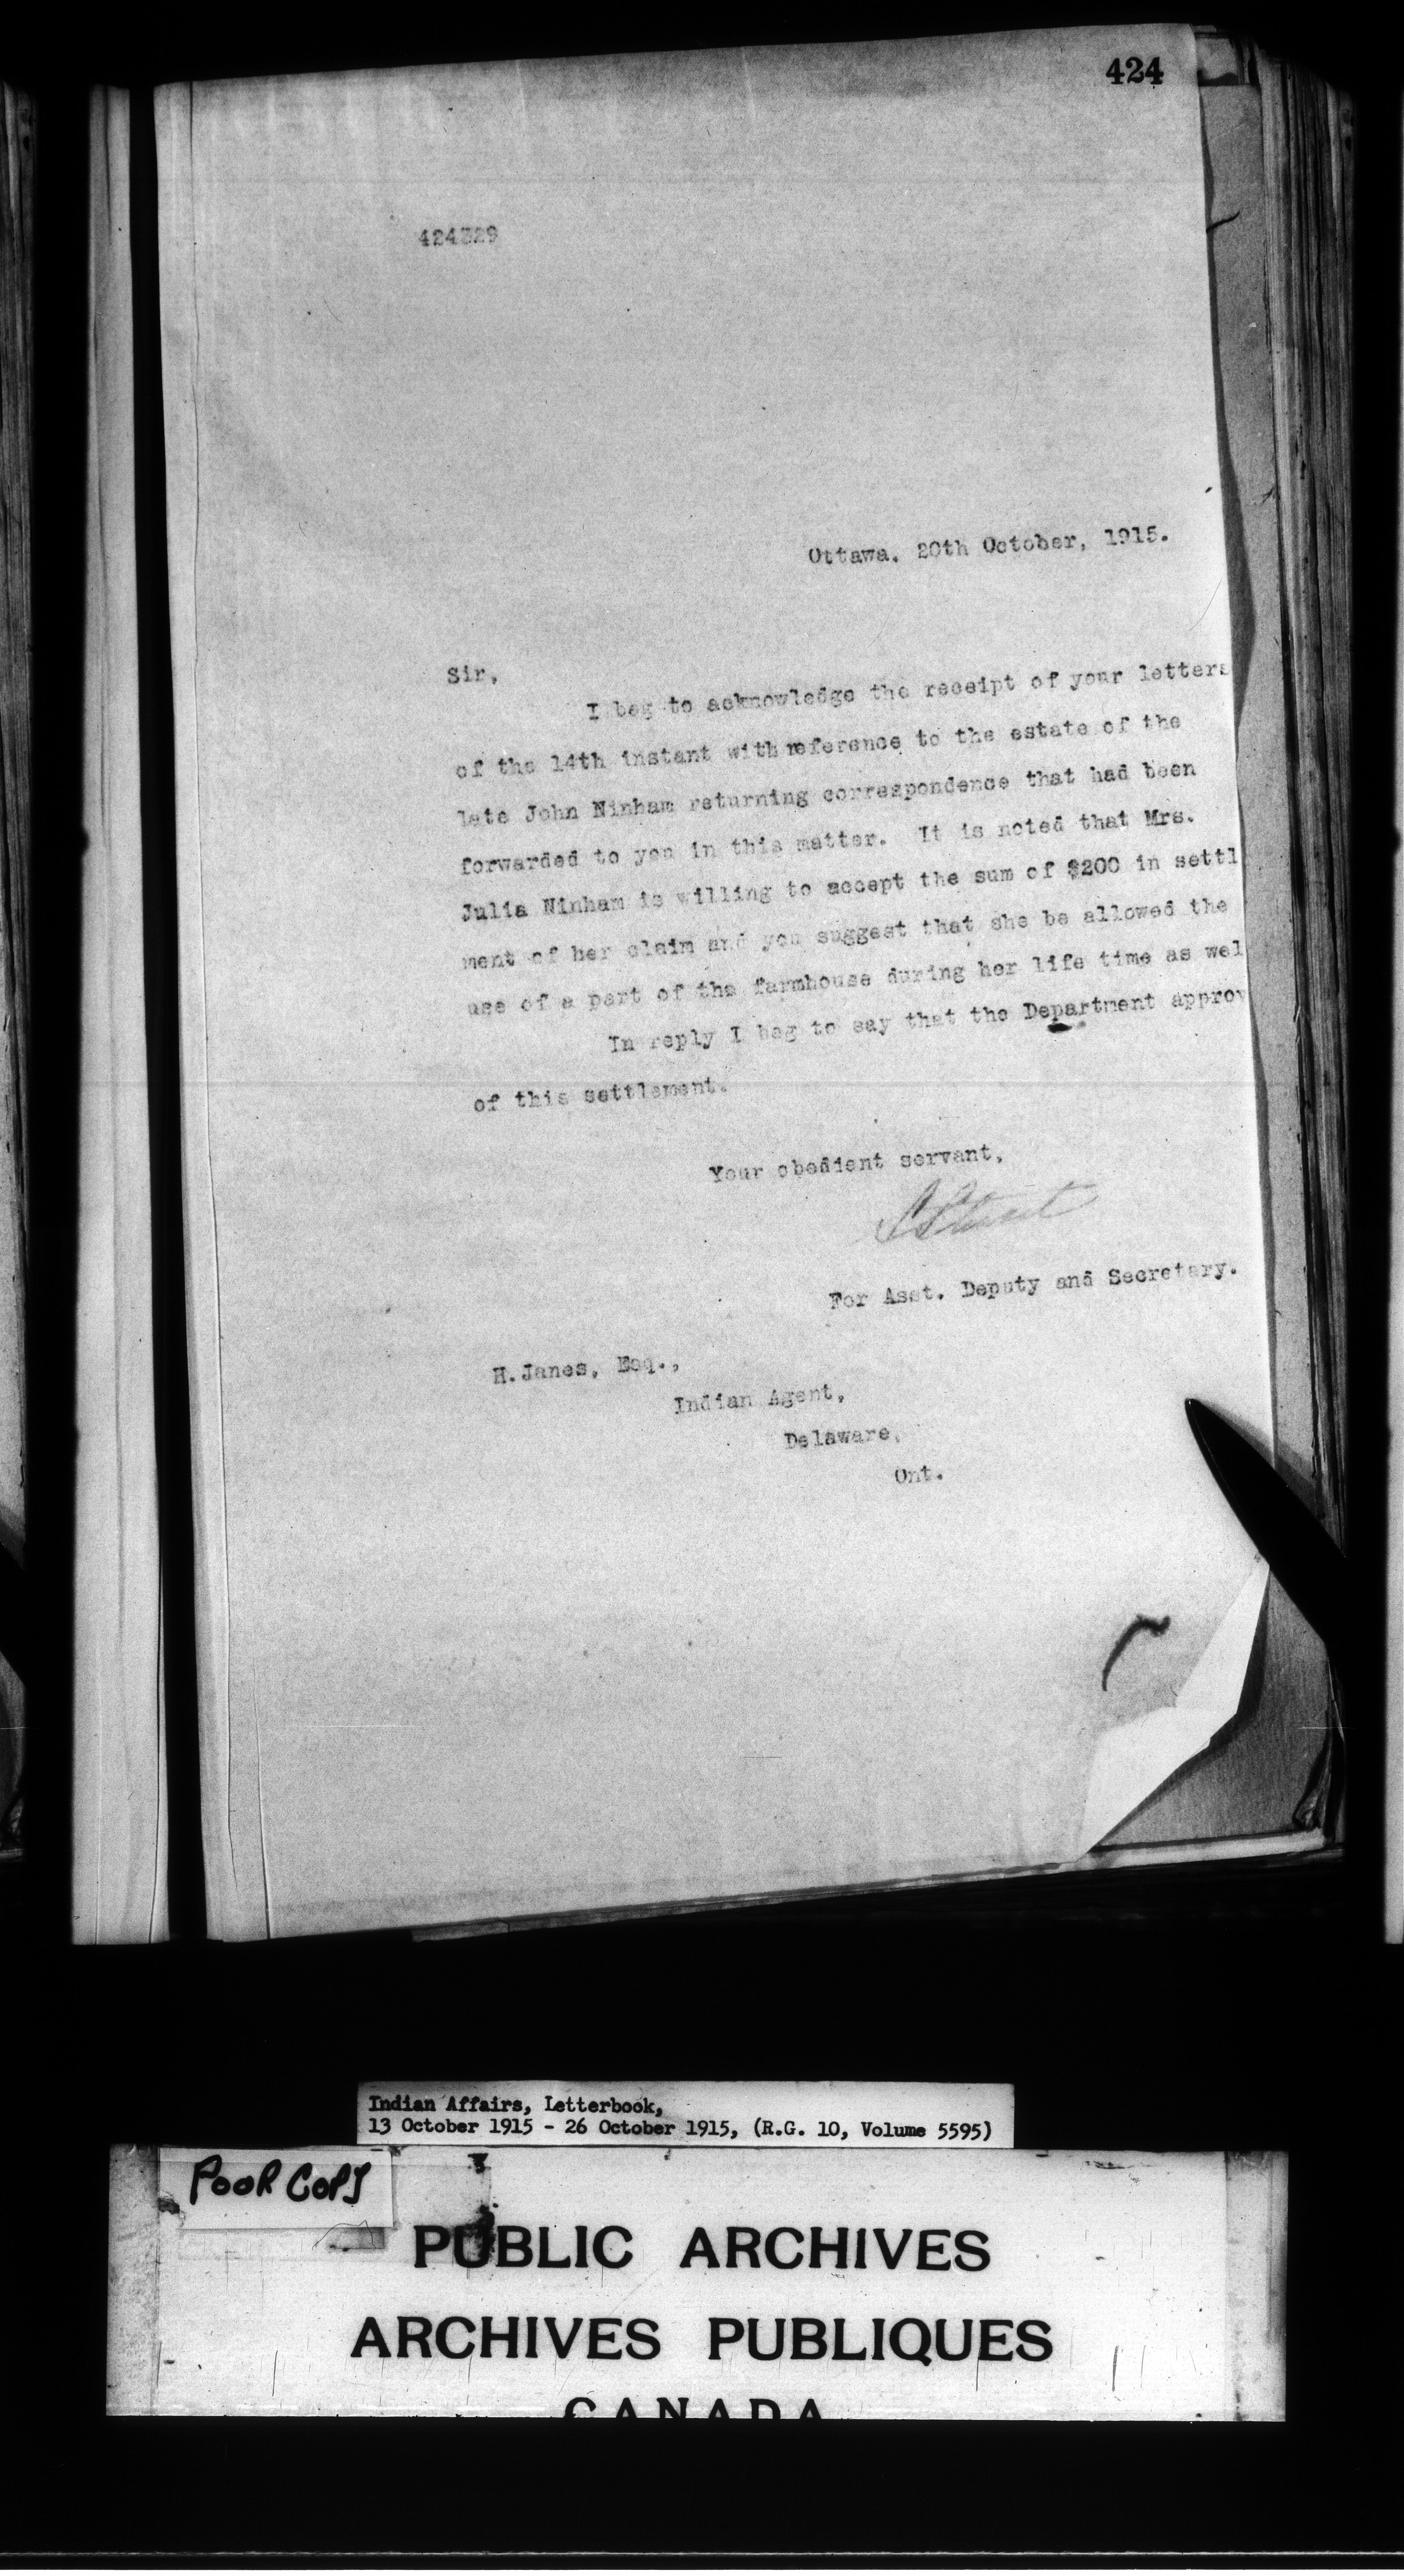 424
424329
Ottawa. 20th October, 1915.
Sir,
I beg to acknowledge the receipt of your letters
of the 14th instant with reference to the estate of the
late John Ninham returning correspondence that had been
forwarded to you in this matter. It is noted that Mrs.
Julia Ninham is willing to accept the sum of $200 in settl
ment of her claim and you suggest that she be allowed the
use of a part of the farmhouse during her life time as wel
In reply I beg to say that the Department approv
of this settlement.
Your obedient servant,
For Asst. Deputy and Secretary.
H. Janes, Esq.,
Indian Agent,
Delaware,
Ont.
Indian Affairs, Letterbook,
13 October 1915 - 26 October 1915, (R.G. 10, Volume 5595)
POOR COPY
PUBLIC ARCHIVES
ARCHIVES PUBLIQUES
CANADA